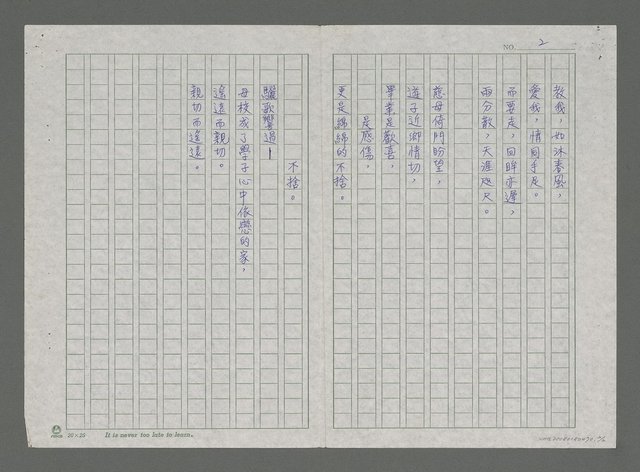 NO. 2
教我，如沐春風，
愛我，情同手足。
而要走，回眸亦遲，
兩分散，天涯咫尺。
慈母倚門盼望，
遊子近鄉情切，
畢業是歡喜，
是感傷，
更是綿綿的不捨。
不捨。
驪歌響過－
母校成了學子心中依戀的家，
遙遠而親切。
親切而遙遠。
20×25 It is never too late to learn.